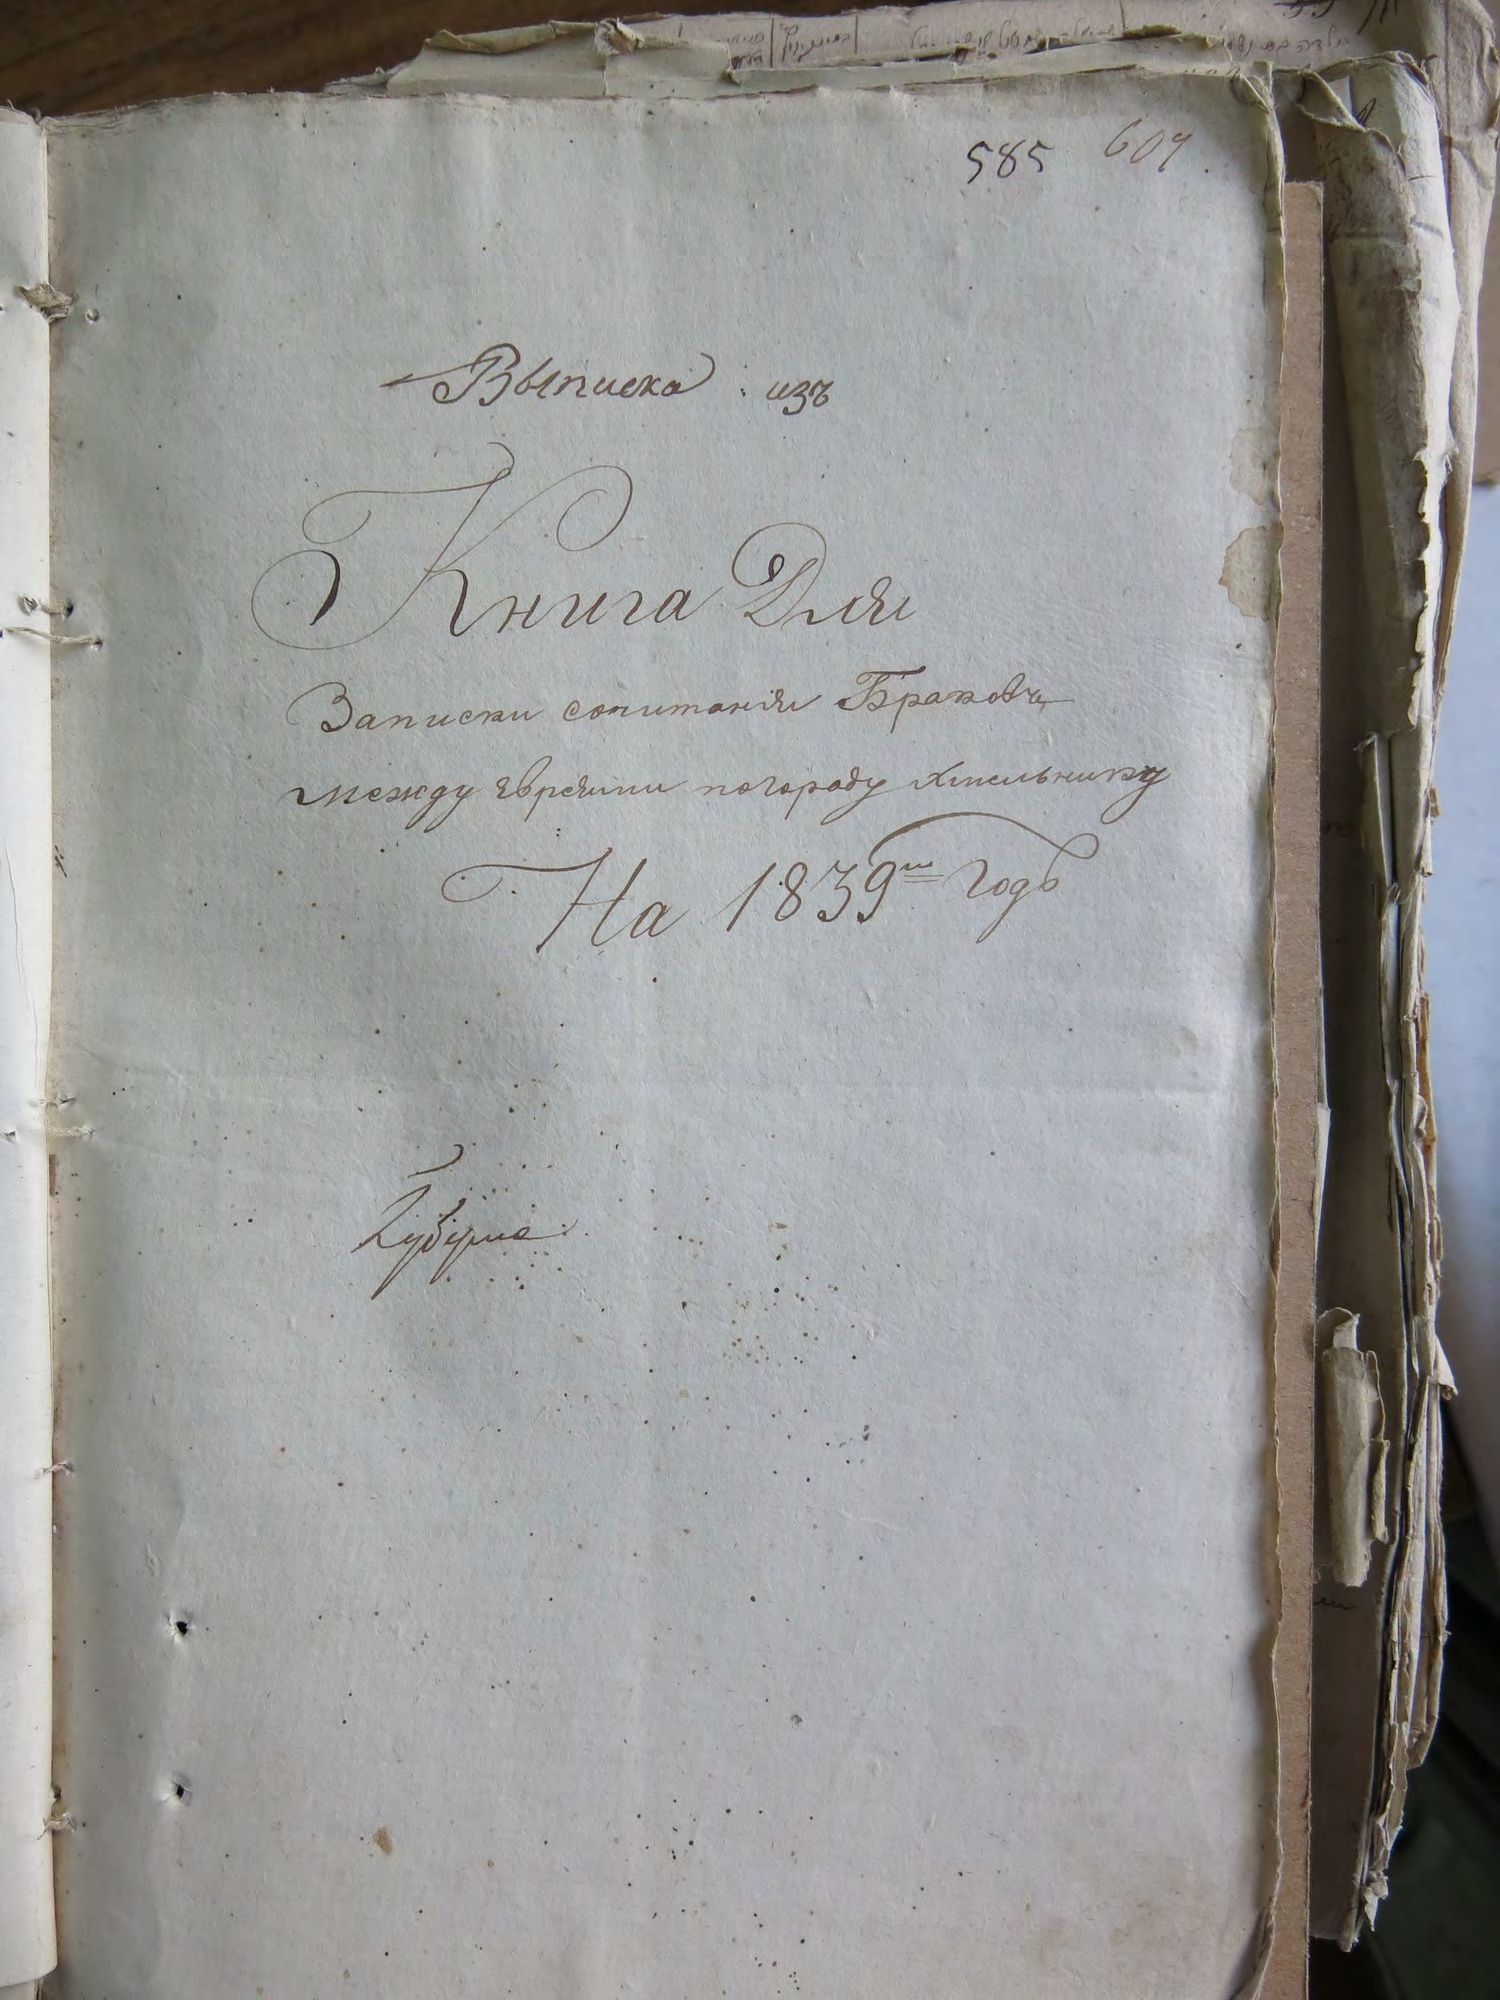 585 609
Выписка изъ
Книга Для
Записки сочитанія Браковъ
между евреями погороду Хмельнику
На 1839й Годъ